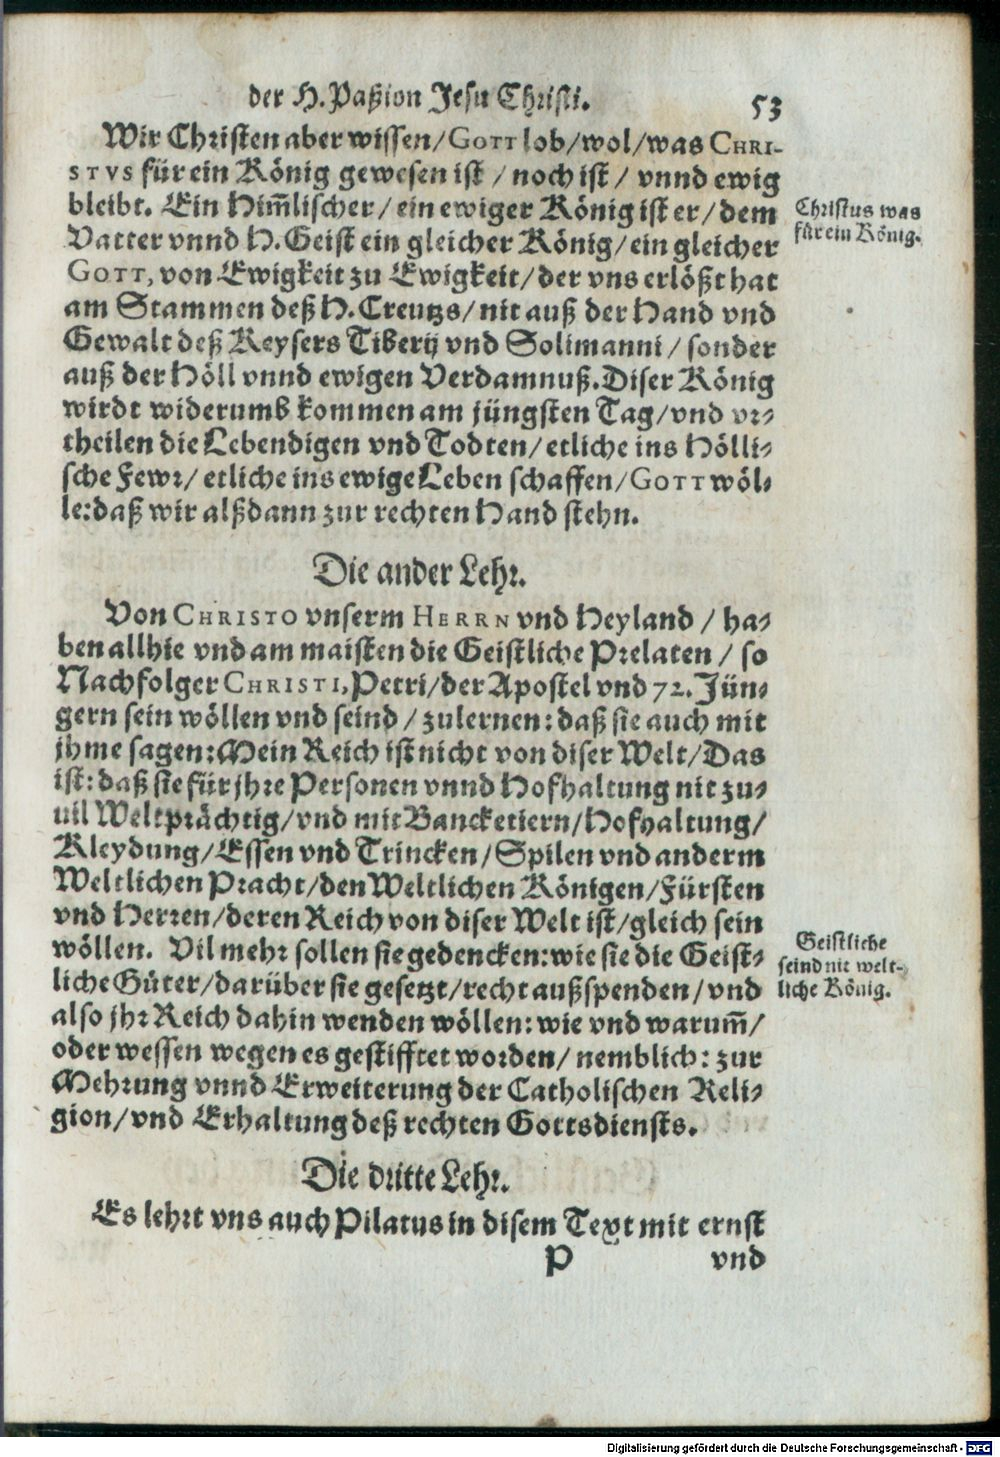 der H. Paßion Jesu Christi. 53
Wir Christen aber wissen/ GOTT lob/ wol/ was CHRI-
STVS für ein König gewesen ist / noch ist / vnnd ewig
bleibt. Ein Him̄lischer/ ein ewiger König ist er/ dem
Vatter vnnd H. Geist ein gleicher König/ ein gleicher
GOTT, von Ewigkeit zu Ewigkeit/ der vns erlößt hat
am Stammen deß H. Creutzs/ nit auß der Hand vnd
Gewalt deß Keysers Tiberij vnd Solimanni/ sonder
auß der Höll vnnd ewigen Verdamnuß. Diser König
wirdt widerumb kommen am jüngsten Tag/ vnd vr-
theilen die Lebendigen vnd Todten/ etliche ins Hölli-
sche Fewr/ etliche ins ewige Leben schaffen/ GOTT wöl-
le: daß wir alßdann zur rechten Hand stehn.
Christus was
für ein König.
Die ander Lehr.
Von CHRISTO vnserm HERRN vnd Heyland / ha-
ben allhie vnd am maisten die Geistliche Prelaten / so
Nachfolger CHRISTI, Petri/ der Apostel vnd 72. Jün-
gern sein wöllen vnd seind / zulernen: daß sie auch mit
jhme sagen: Mein Reich ist nicht von diser Welt/ Das
ist: daß sie für jhre Personen vnnd Hofhaltung nit zu-
uil Weltprächtig/ vnd mit Bancketiern/ Hofhaltung/
Kleydung/ Essen vnd Trincken/ Spilen vnd anderm
Weltlichen Pracht/ den Weltlichen Königen/ Fürsten
vnd Herren/ deren Reich von diser Welt ist/ gleich sein
wöllen. Vil mehr sollen sie gedencken: wie sie die Geist-
liche Güter/ darüber sie gesetzt/ recht außspenden/ vnd
also jhr Reich dahin wenden wöllen: wie vnd warum̄/
oder wessen wegen es gestifftet worden/ nemblich: zur
Mehrung vnnd Erweiterung der Catholischen Reli-
gion/ vnd Erhaltung deß rechten Gottsdiensts.
Geistliche
seind nit welt-
liche König.
Die dritte Lehr.
Es lehrt vns auch Pilatus in disem Text mit ernst
P vnd
Digitalisierung gefördert durch die Deutsche Forschungsgemeinschaft - DFG